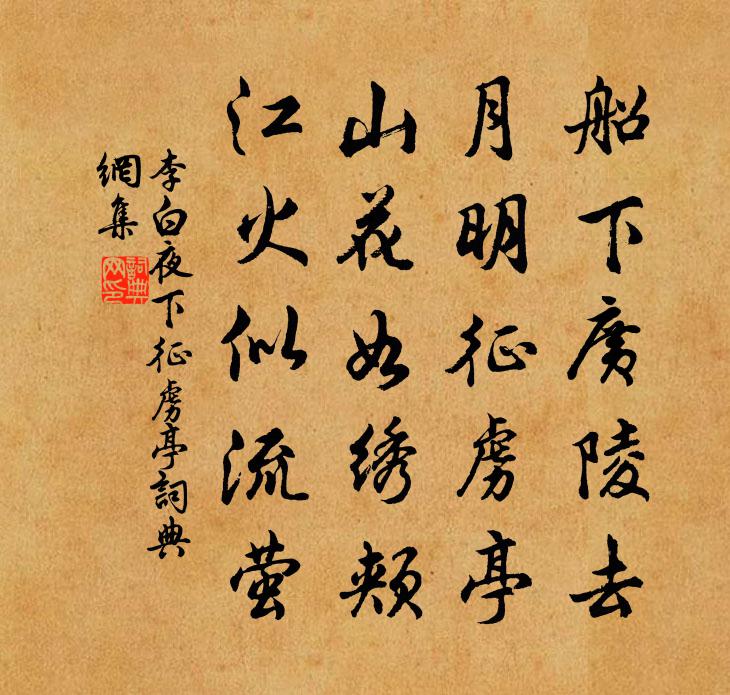 船下广陵去
月明征虏亭
山花如绣颊
江火似流萤
李白夜下征虏亭詞典
網集
詞典
网印